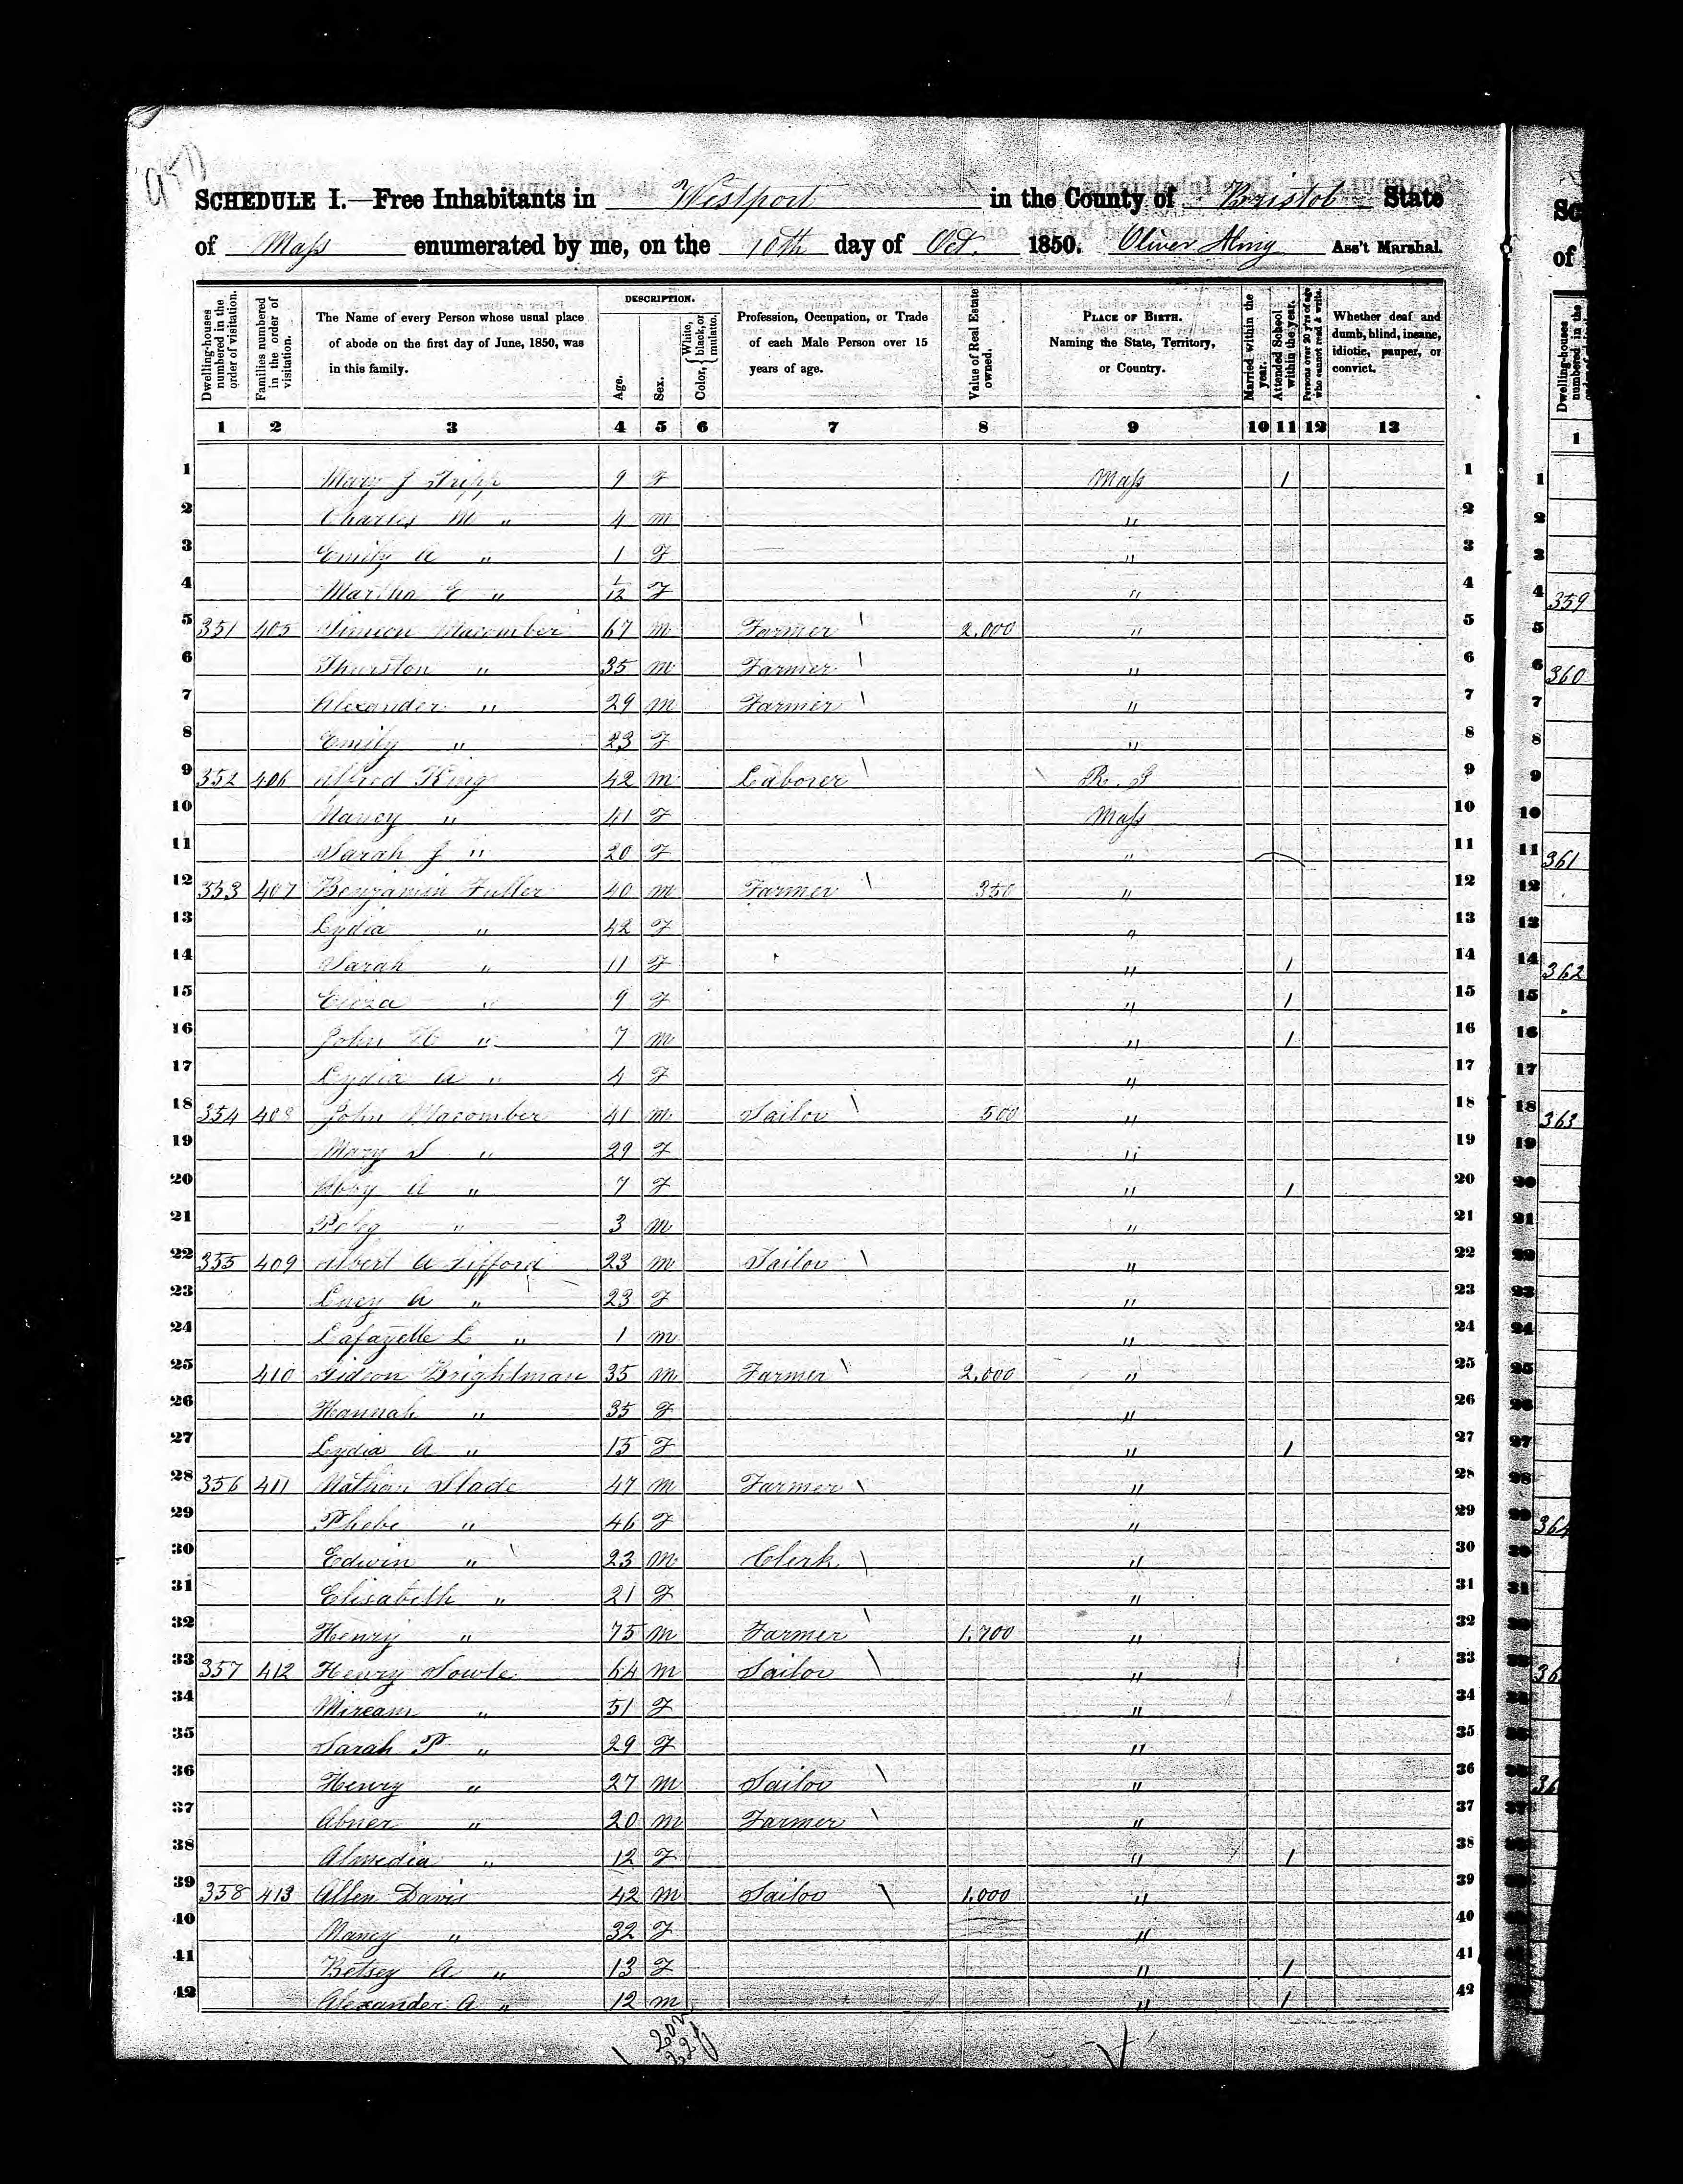 957
SCHEDULE I.—Free Inhabitants in Westport in the County of Bristol State
of Mass enumerated by me, on the 10th day of Oct. 1850. Oliver Ass't Marshal.
Dwelling-houses numbered in the order of visitation.
Families numbered in the order of visitation.
The Name of every Person whose usual place of abode on the first day of June, 1850, was in this family.
DESCRIPTION.
Age.
Sex.
Color, { White, black, or mulatto.
Profession, Occupation, or Trade of each Male Person over 15 years of age.
Value of Real Estate owned.
PLACE OF BIRTH. Naming the State, Territory, or Country.
Married within the year.
Attended School within the year.
Persons over 20 y'rs of age who cannot read & write.
Whether deaf and dumb, blind, insane, idiotic, pauper, or convict.
1 2 3 4 5 6 7 8 9 10 11 12 13
1 Mary J Tripp 9 F Mass 1 1
2 Charles M " 4 m " 2
3 Emily A " 1 F " 3
4 Martha E " 1/12 F " 4
5 351 405 Simeon Macomber 67 m Farmer 2,000 " 5
6 Thurston " 35 m Farmer " 6
7 Alexander " 29 m Farmer " 7
8 Emily " 23 F " 8
9 352 406 Alfred King 42 m Laborer R. I 9
10 Nancy " 41 F Mass 10
11 Sarah J " 20 F " 11
12 353 407 Benjamin Fuller 40 m Farmer 350 " 12
13 Lydia " 42 F " 13
14 Sarah " 11 F " 1 14
15 Eliza " 9 F " 1 15
16 John H " 7 m " 1 16
17 Lydia A " 4 F " 17
18 354 408 John Macomber 41 m Sailor 500 " 18
19 Mary S " 29 F " 19
20 Abby A " 7 F " 1 20
21 Peleg " 3 m " 21
22 355 409 Albert A Gifford 23 m Sailor " 22
23 Lucy A " 23 F " 23
24 Lafayette L " 1 m " 24
25 410 Gideon Brightman 35 m Farmer 2,000 " 25
26 Hannah " 35 F " 26
27 Lydia A " 15 F " 1 27
28 356 411 Nathan Slade 47 m Farmer " 28
29 Phebe " 46 F " 29
30 Edwin " 23 m Clerk " 30
31 Elisabeth " 21 F " 31
32 Henry " 75 m Farmer 1,700 " 32
33 357 412 Henry Sowle 64 m Sailor " 33
34 Miream " 51 F " 34
35 Sarah P " 29 F " 35
36 Henry " 27 m Sailor " 36
37 Abner " 20 m Farmer " 37
38 Almedia " 12 F " 1 38
39 358 413 Allen Davis 42 m Sailor 1,000 " 39
40 Nancy " 32 F " 40
41 Betsey A " 13 F " 1 41
42 Alexander A " 12 m " 1 42
Sc
of
Dwelling-houses numbered in the
1
1
2
3
4 359
5
6 360
7
8
9
10
11 361
12
13
14 362
15
16
17
18 363
19
20
21
22
23
24
25
26
27
28
29 364
30
31